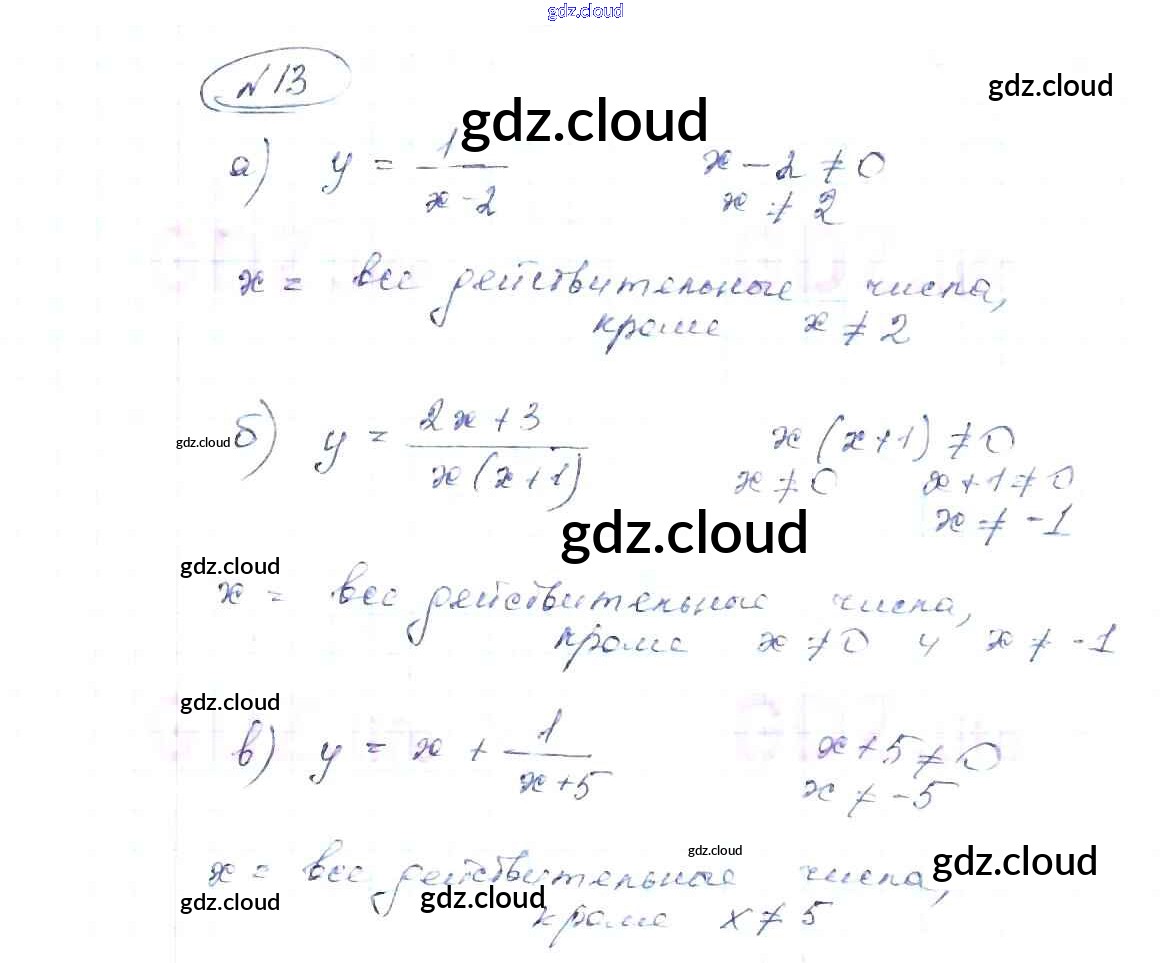 gdz.cloud
№13
gdz.cloud
gdz.cloud
а) y = 1/(x-2) x - 2 ≠ 0
x ≠ 2
x = все действительные числа,
кроме x ≠ 2
gdz.cloud
б) y = (2x+3)/(x(x+1)) x(x+1) ≠ 0
x ≠ 0 x+1 ≠ 0
x ≠ -1
gdz.cloud
gdz.cloud
x = все действительные числа,
кроме x ≠ 0 и x ≠ -1
gdz.cloud
в) y = x + 1/(x+5) x+5 ≠ 0
x ≠ -5
gdz.cloud
gdz.cloud
x = все действительные числа,
gdz.cloud
gdz.cloud
кроме x ≠ 5